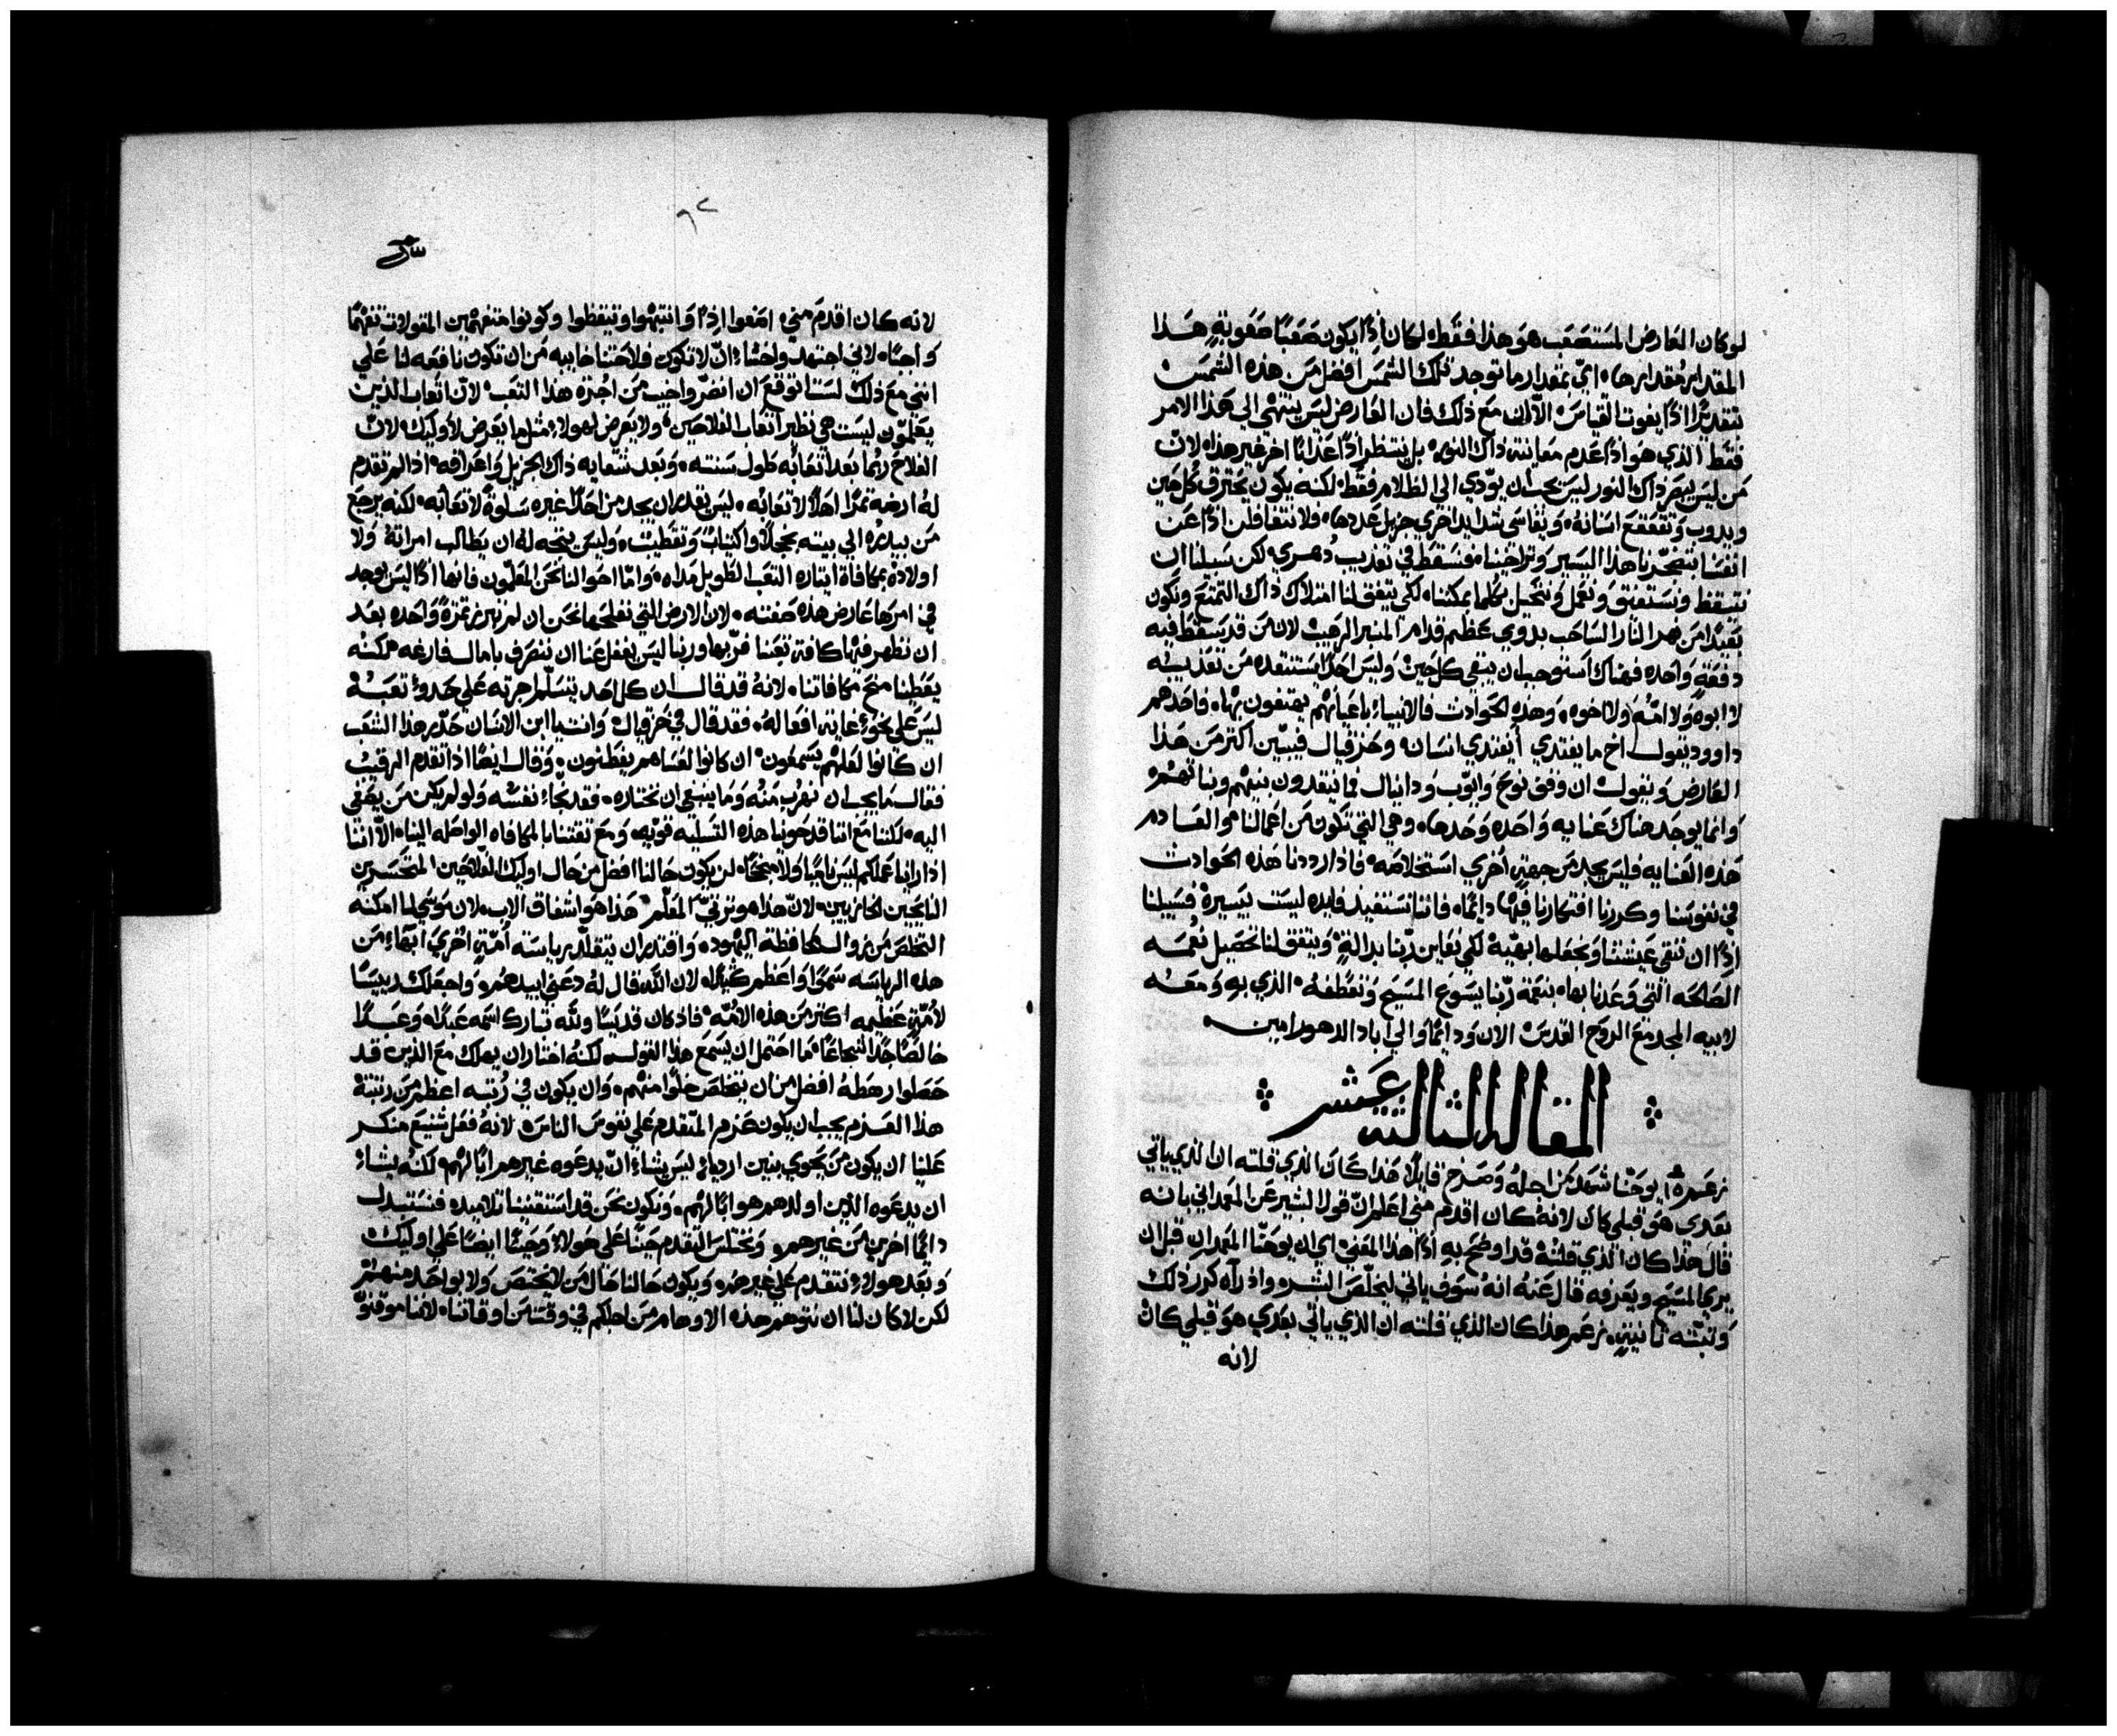 لو كان العارض المستصعب هو هذا فقط لكان اذًا يكون صعبًا صعوبةٍ هذا
المقدار مقدارها، اي بمقدار ما توجد تلك الشمس افضل من هذه الشمس
بتقديرٍ اذًا يفوت القياس، الا ان مع ذلك فان العارض ليس ينتهي الي هذا الامر
فقط الذي هو اذًا عدم معاينته ذاك النور، بل ينتظر اذًا عذابًا اخر غير هذا، لان
من ليس يبصر ذاك النور ليس يجب ان يودي الي الظلام فقط، لكنه يكون يحترق كل حين
ويدوب وتقعقع اسنانه ويقاسي شدايد اخري جزيل عددها، ولا نتغافلن اذًا عن
انفسنا هذا اليسير وتراخينا، فنسقط في تعذيب دهري، لكن سبيلنا ان
نتيقظ ونستفيق ونعمل ونتحيل بكلما يمكننا، لكي يتفق لنا امتلاك ذاك التمتع ونكون
بعيدًا من نهر النار الساحب بدوي عظيم قدام المنبر الرهيب، لان من قد يسقط فيه
دفعةٍ واحده فهناك استوجب ان يبقي كل حين وليس احدًا يستنقذه من تعذيبه
لا ابوه ولا امه ولا اخوه، وهذه الحوادث فالانبياء باعيانهم يهتفون بها، فاحدهم
داوود يقول اخ ما يفتدي أيفتدي انسان، وحزقيال فيبين اكثر من هذا
العارض ويقول ان وقف نوح وايوب ودانيال فما ينقذون بنيهم وبناتهم
وانما يوجد هناك عنايه واحده وحدها، وهي التي تكون من اعمالنا، والعادم
هذه العنايه فليس يجد من جهةٍ اخري استخلاصه، فاذا رددنا هذه الحوادث
في نفوسنا وكررنا افتكارنا فيها دايمًا، فاننا نستفيد فايده ليست بيسيرة، فسبيلنا
اذًا ان ننقي عيشتنا ونجعلها بهية لكي نعاين ربنا بدالةٍ، ويتفق لنا تحصيل نعمه
الصالحه التي وعدنا بها، بنعمة ربنا يسوع المسيح وتعطفه، الذي به ومعه
لابيه المجد مع الروح القدس الان ودايمًا والي اباد الدهور امين
المقاله الثالثه عشر
زعم، ان يوحنا شهد من اجله وصرخ قايلًا هذا كان الذي قلته ان الذي ياتي
بعدي هو قبلي كان لانه كان اقدم مني، اعلم ان قول البشير عن المعمداني بانه
قال هذا كان الذي قلته قد اوضح به اذًا هذا المعني اي ان يوحنا المعمدان قبل ان
يري المسيح ويعرفه قال عنه انه سوف ياتي ليخلص البشر، واذ رآه كرر ذلك
وثبته ثانيةٍ، زعم هذا كان الذي قلته ان الذي ياتي بعدي هو قبلي كان
لانه
٩٢
لانه كان اقدم مني، امعوا اذًا وانتبهوا وتيقظوا وكونوا متفهمين المقولات تفهمًا
واجبًا، لاني اجتهد واخشاء ان لا تكون فلاحتنا خايبه من ان تكون نافعه لنا، علي
انني مع ذلك لست اتوقع ان انضر واخيب من اجرة هذا التعب، لان اتعاب الذين
يعلمون ليست هي نظير اتعاب الفلاحين، ولا يعرض لهولاء مثلما يعرض لاوليك، لان
الفلاح ربما بعد اتعابه طول سنته، وبعد شقايه ذاك الجزيل واعراقه، اذا لم تقدم
له ارضه ثمرًا اهلًا لاتعابه، ليس يقدر ان يجد من احدٍ غيره سلوةً لاتعابه، لكنه يرجع
من بيدره الي بيته بخجلٍ واكتيابٍ وتقطيب، وليس يتجه له ان يطالب امراته ولا
اولاده بمكافاة التعب الطويل مداه، واما احوالنا نحن المعلمون فانها اذًا ليس يوجد
في امرها عارض هذه صفته، لان الارض التي نفلحها نحن ان لم تبرز ثمرةً واحده بعد
ان نظهر فيها كافة تعبنا، فربها وربنا ليس يغفل عنا ان ننصرف بامال فارغه، لكنه
يعطينا منح مكافاتنا، لانه قد قال ان كل احد يتسلم اجرته علي حدو تعبه
ليس علي نحو غاية افعاله، فقد قال في حزقيال وانت يا ابن الانسان حذر هذا الشعب
ان كانوا لعلهم يسمعون، ان كانوا لعساهم يفطنون، وقال ايضًا اذا تقدم الرقيب
فقال ما يجب ان نهرب منه وما ينبغي ان نختاره، فقد نجاء نفسه ولو لم يكن من يصغي
اليه، لكننا مع اننا قد حوينا هذه التسليه قويه، ومع ثقتنا بالمكافاه الواصله الينا، الا اننا
اذا راينا عملكم ليس ناميًا ولا منجحًا، لن يكون حالنا افضل من حال اوليك الفلاحين المتحسرين
النايحين الحازنين، لان هذا هو ترتيب المعلم هذا هو اشفاق الاب، لان موسي لما امكنه
التخلص من فظة اليهود، واقتدر ان يتقلد برياسته امةٍ اخري ابهاء من
هذه الرياسه سموًا واعظم كثيرًا، لان الله قال له دعني ابيدهم، واجعلك رييسًا
لامةٍ عظيمه اكثر من هذه الامه، فاذ كان قديسًا ولله تبارك اسمه عبدًا، وعبدًا
خالصًا جدًا شجاعًا، ما احتمل ان يسمع هذا القول، لكنه اختار ان يهلك مع الذين قد
حصلوا رهطه افضل من ان يتخلص خلوًا منهم، وان يكون في رتبه اعظم من رتبتة
هذا العزم يجب ان يكون عزم المتقدم علي نفوس الناس، لانه فعل شنيع منكر
علينا ان يكون من يحوي بنين ارديا، ليس يشاء ان يدعوه غيرهم ابًا لهم، لكنه يشاء
ان يدعوه الذين اولدهم هو ابًا لهم، ونكون نحن قد استقنينا تلاميذه فنستبدل
دايمًا اخرين من غيرهم، ونختلس التقدم حينًا علي هولاء، وحينًا ايضًا علي اوليك
وبعد هولاء نتقدم علي غيرهم، ويكون حالنا حال من لا يختص ولا بواحد منهم
لكن لا كان لنا ان نتوهم هذه الاوهام من اجلكم في وقت من اوقاتنا، لاننا موقنون